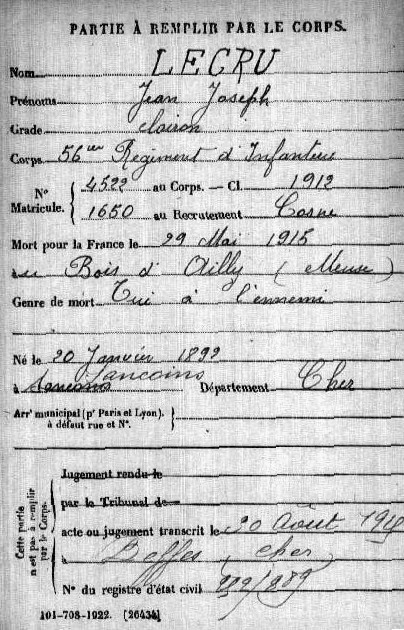 PARTIE À REMPLIR PAR LE CORPS.
Nom LECRU
Prénoms Jean Joseph
Grade clairon
Corps 56 Régiment d'Infanterie
N° Matricule. { 4522 au Corps. — Cl. 1912
1650 au Recrutement Cosne
Mort pour la France le 29 Mai 1915
au Bois d'Ailly (Meuse)
Genre de mort Tué à l'ennemi
Né le 20 Janvier 1892
à Sancoins Département Cher
Arr' municipal (p' Paris et Lyon), à défaut rue et N°.
Cette partie n'est pas à remplir par le Corps.
Jugement rendu le
par le Tribunal de
acte ou jugement transcrit le 20 Août
à Beffes (Cher)
N° du registre d'état civil
101-708-1922. [26434]